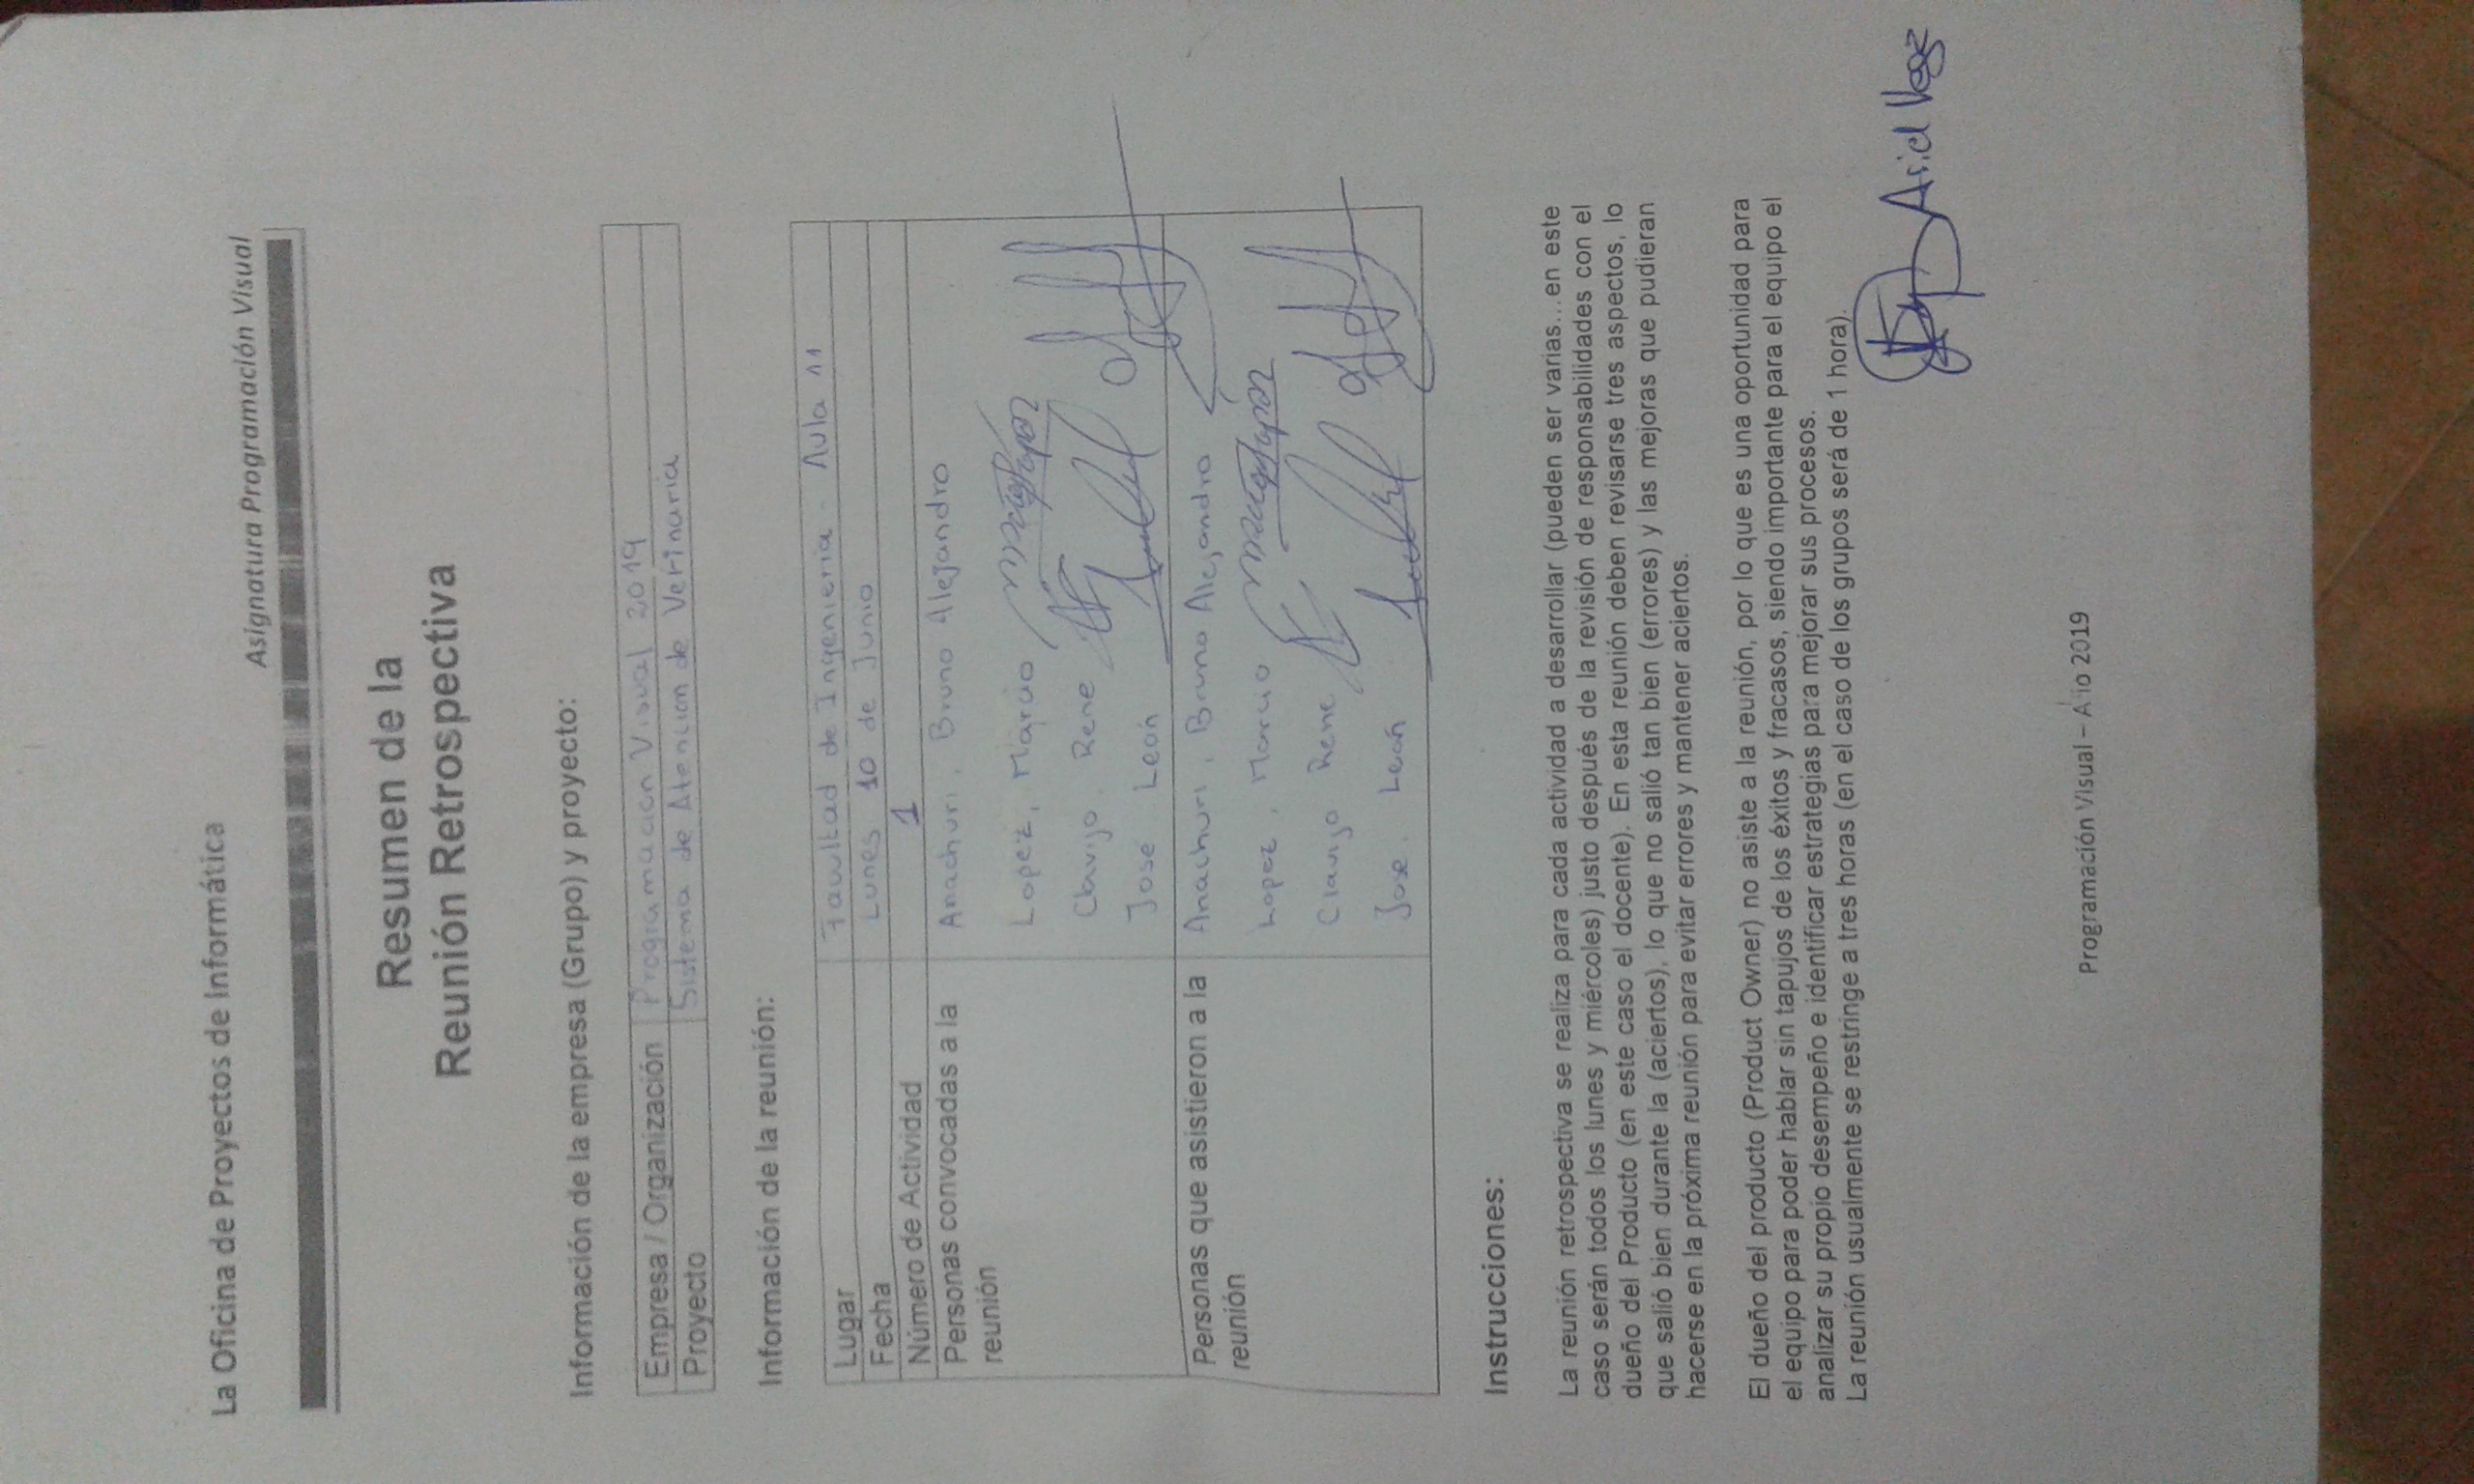 La Oficina de Proyectos de Informática
Asignatura Programación Visual
Resumen de la
Reunión Retrospectiva
Información de la empresa (Grupo) y proyecto:
Empresa / Organización Programacion Visual 2019
Proyecto Sistema de Atencion de Vetinaria
Información de la reunión:
Lugar Facultad de Ingenieria - Aula 11
Fecha Lunes 10 de Junio
Número de Actividad 1
Personas convocadas a la Anachuri, Bruno Alejandro
reunión
Lopez, Marcio
Clavijo, Rene
Jose León
Personas que asistieron a la Anachuri, Bruno Alejandro
reunión
Lopez, Marcio
Clavijo Rene
Jose. León
Instrucciones:
La reunión retrospectiva se realiza para cada actividad a desarrollar (pueden ser varias...en este
caso serán todos los lunes y miércoles) justo después de la revisión de responsabilidades con el
dueño del Producto (en este caso el docente). En esta reunión deben revisarse tres aspectos, lo
que salió bien durante la (aciertos), lo que no salió tan bien (errores) y las mejoras que pudieran
hacerse en la próxima reunión para evitar errores y mantener aciertos.
El dueño del producto (Product Owner) no asiste a la reunión, por lo que es una oportunidad para
el equipo para poder hablar sin tapujos de los éxitos y fracasos, siendo importante para el equipo el
analizar su propio desempeño e identificar estrategias para mejorar sus procesos.
La reunión usualmente se restringe a tres horas (en el caso de los grupos será de 1 hora).
Ariel Vega
Programación Visual – Año 2019